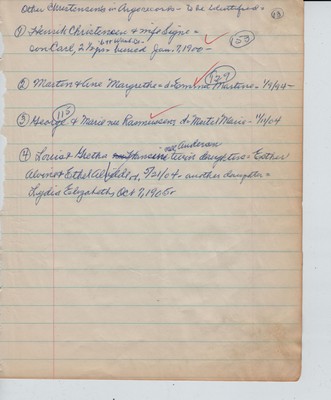 Other Christensens in Argo records - To be Identified -
23
① Henrik Christensen & wife Signe =
son Carl, 2 1/2 yrs - buried Jan. 7, 1900 -
53
② Morton & Ane Margrethe = d. Emma Martine - 1/9/94 -
127
115
③ George & Marie nee Rasmussen, d. Metel Marie - 1/1/04
④ Louis & Gretha Hansine - twin daughters = Esther
nee Andersen
Alvina & Ethel 5/21/04 - another daughter =
Lydia Elizabeth, Oct 7, 1905